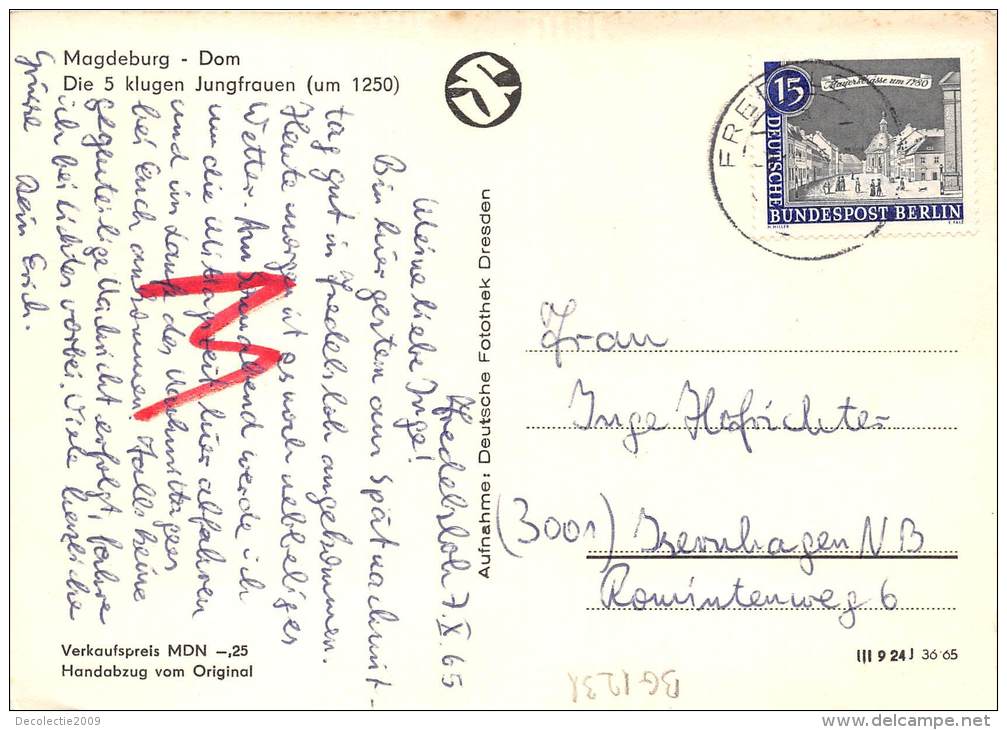 Magdeburg - Dom
Die 5 klugen Jungfrauen (um 1250)
Fredelsloh 7. X. 65
Meine liebe Inge!
Bin hier gestern am Spätnachmit-
tag gut in Fredelsloh angekommen.
Heute morgen ist es noch nebeliges
Wetter. Am Sonnabend werde ich
um die Mittagszeit hier abfahren
und im Laufe des Nachmittages
bei Euch ankommen. Falls keine
gegenteilige Nachricht erfolgt, fahre
ich bei vorbei. Viele herzliche
Grüsse Dein Erich.
Verkaufspreis MDN -,25
Handabzug vom Original
Aufnahme: Deutsche Fotothek Dresden
15
Mauerstrasse um 1780
DEUTSCHE
BUNDESPOST BERLIN
FRE
Frau
Inge Hofrichter
(3001) Isernhagen NB
Romintenweg 6
III 9 24 J 36·65
BG1231
Decolectie2009
http://www.delcampe.net